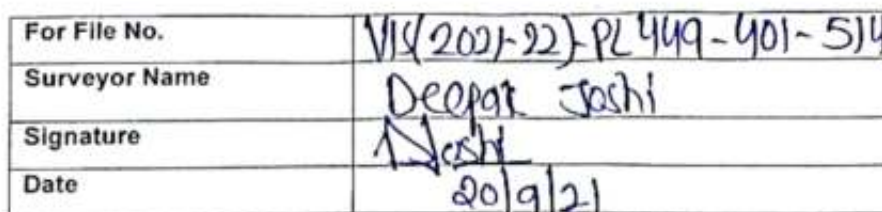 For File No. VIS(2021-22)-PL449-401-514
Surveyor Name Deepak Joshi
Signature
Date 20/9/21